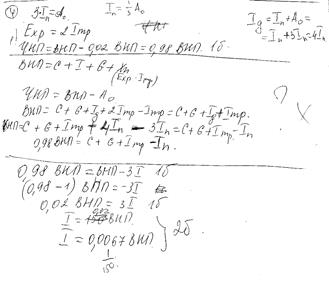 ④ 3·Iₙ = A₀. Iₙ = 1/3 A₀
Exp = 2 Imp
Ig = Iₙ + A₀ =
= Iₙ + 3Iₙ = 4Iₙ
ЧНП = ВНП - 0,02 ВНП = 0,98 ВНП. 1б
ВНП = C + I + G + Xn
(Exp - Imp)
ЧНП = ВНП - A₀
?
ВНП = C + G + Ig + 2Imp - Imp = C + G + Ig + Imp.
ВНП = C + G + Imp + 4Iₙ - 3Iₙ = C + G + Imp - Iₙ
0,98 ВНП = C + G + Imp - Iₙ.
0,98 ВНП = ВНП - 3I 1б
(0,98 - 1) ВНП = -3I
0,02 ВНП = 3I 1б
I = ВНП.
I = 0,0067 ВНП } 2б
1/150